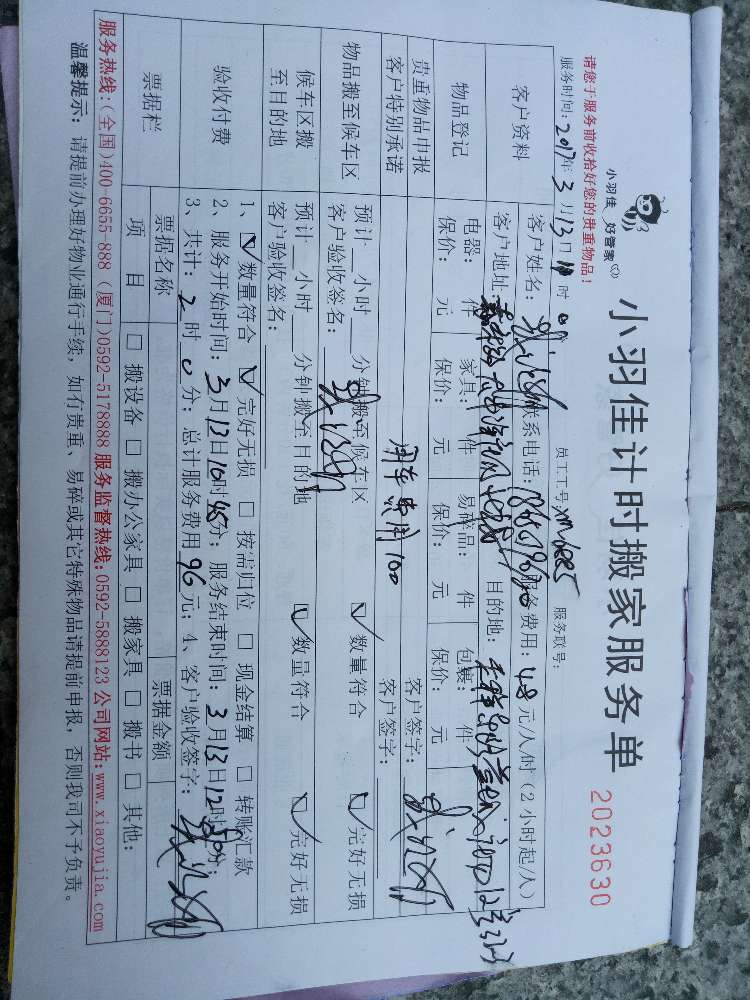 小羽佳 好管家
小羽佳计时搬家服务单
2023630
请您于服务前收拾好您的贵重物品!
服务时间: 2017年 3月13日 时 分 员工工号: xm6885 服务联号:
客户资料 客户姓名: 联系电话: 服务费用: 48 元/人/时(2小时起/人)
客户地址: 目的地:
物品登记 电器: 件 家具: 件 易碎品: 件 包裹: 件
保价: 元 保价: 元 保价: 元 保价: 元
贵重物品申报 客户签字:
客户特别承诺 用车费用100 客户签字:
物品搬至候车区 预计 小时 分钟搬至候车区 ☑ 数量符合 ☑ 完好无损
客户验收签名:
候车区搬至目的地 预计 小时 分钟搬至目的地 ☑ 数量符合 ☑ 完好无损
客户验收签名:
验收付费 1、☑ 数量符合 ☑ 完好无损 □ 按需归位 □ 现金结算 □ 转账汇款
2、服务开始时间: 3月13日10时45分; 服务结束时间: 3月13日12时 分;
3、共计: 2 时 0 分; 总计服务费用 96 元; 4、客户验收签字:
票据栏 票据名称 票据金额
项目 □ 搬设备 □ 搬办公家具 □ 搬家具 □ 搬书 □ 其他:
服务热线:(全国)400-6655-888 (厦门)0592-5178888 服务监督热线:0592-5888123 公司网站:www.xiaoyujia.com
温馨提示: 请提前办理好物业通行手续, 如有贵重、易碎或其它特殊物品请提前申报, 否则我司不予负责。